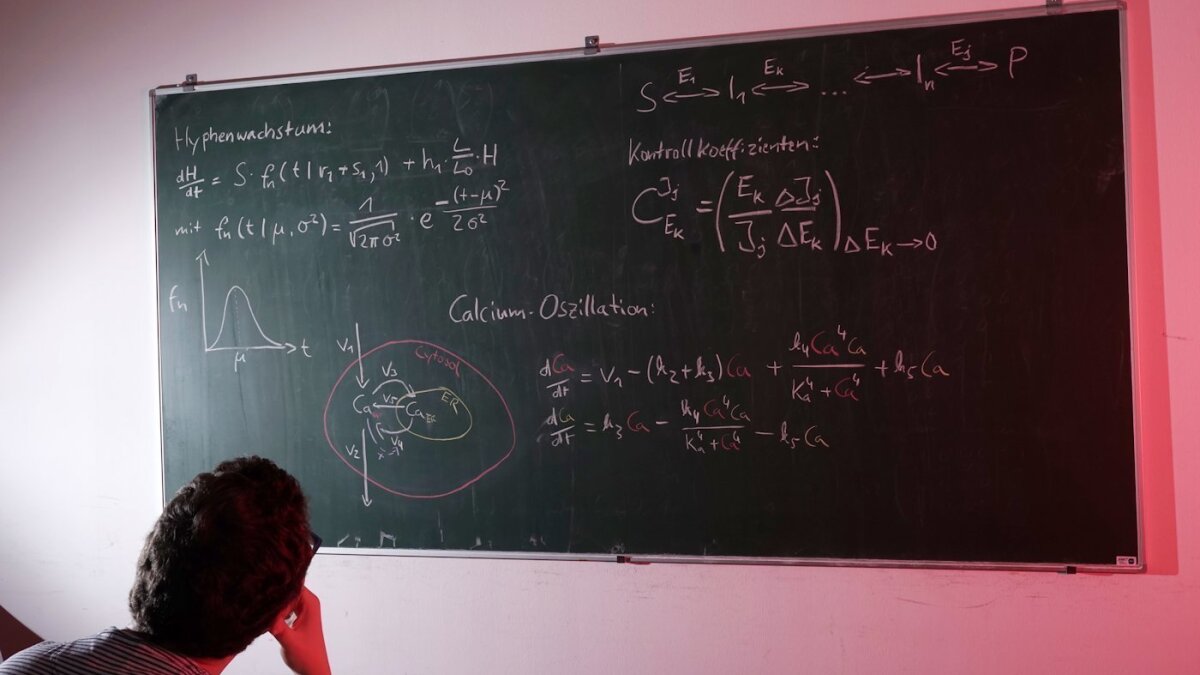 Hyphenwachstum:
dH/dt = S · fn(t | r2 + s1, 1) + h1 · L/L0 · H
mit fn(t | μ, σ²) = 1/√2πσ² · e^-(t-μ)²/2σ²
fn
μ
t
S ⟷ I1 ⟷ ... ⟷ In ⟷ P
E1 Ek Ej
Kontrollkoeffizienten:
C^Jj_Ek = (Ek/Jj ΔJj/ΔEk) ΔEk→0
Calcium-Oszillation:
V1
Cytosol
V3
ER
Ca
V5
CaER
V4
V2
dCa/dt = V1 - (k2 + k3)Ca + k4Ca⁴Ca/Ka⁴ + Ca⁴ + k5Ca
dCa/dt = k3Ca - k4Ca⁴Ca/Ka⁴ + Ca⁴ - k5Ca